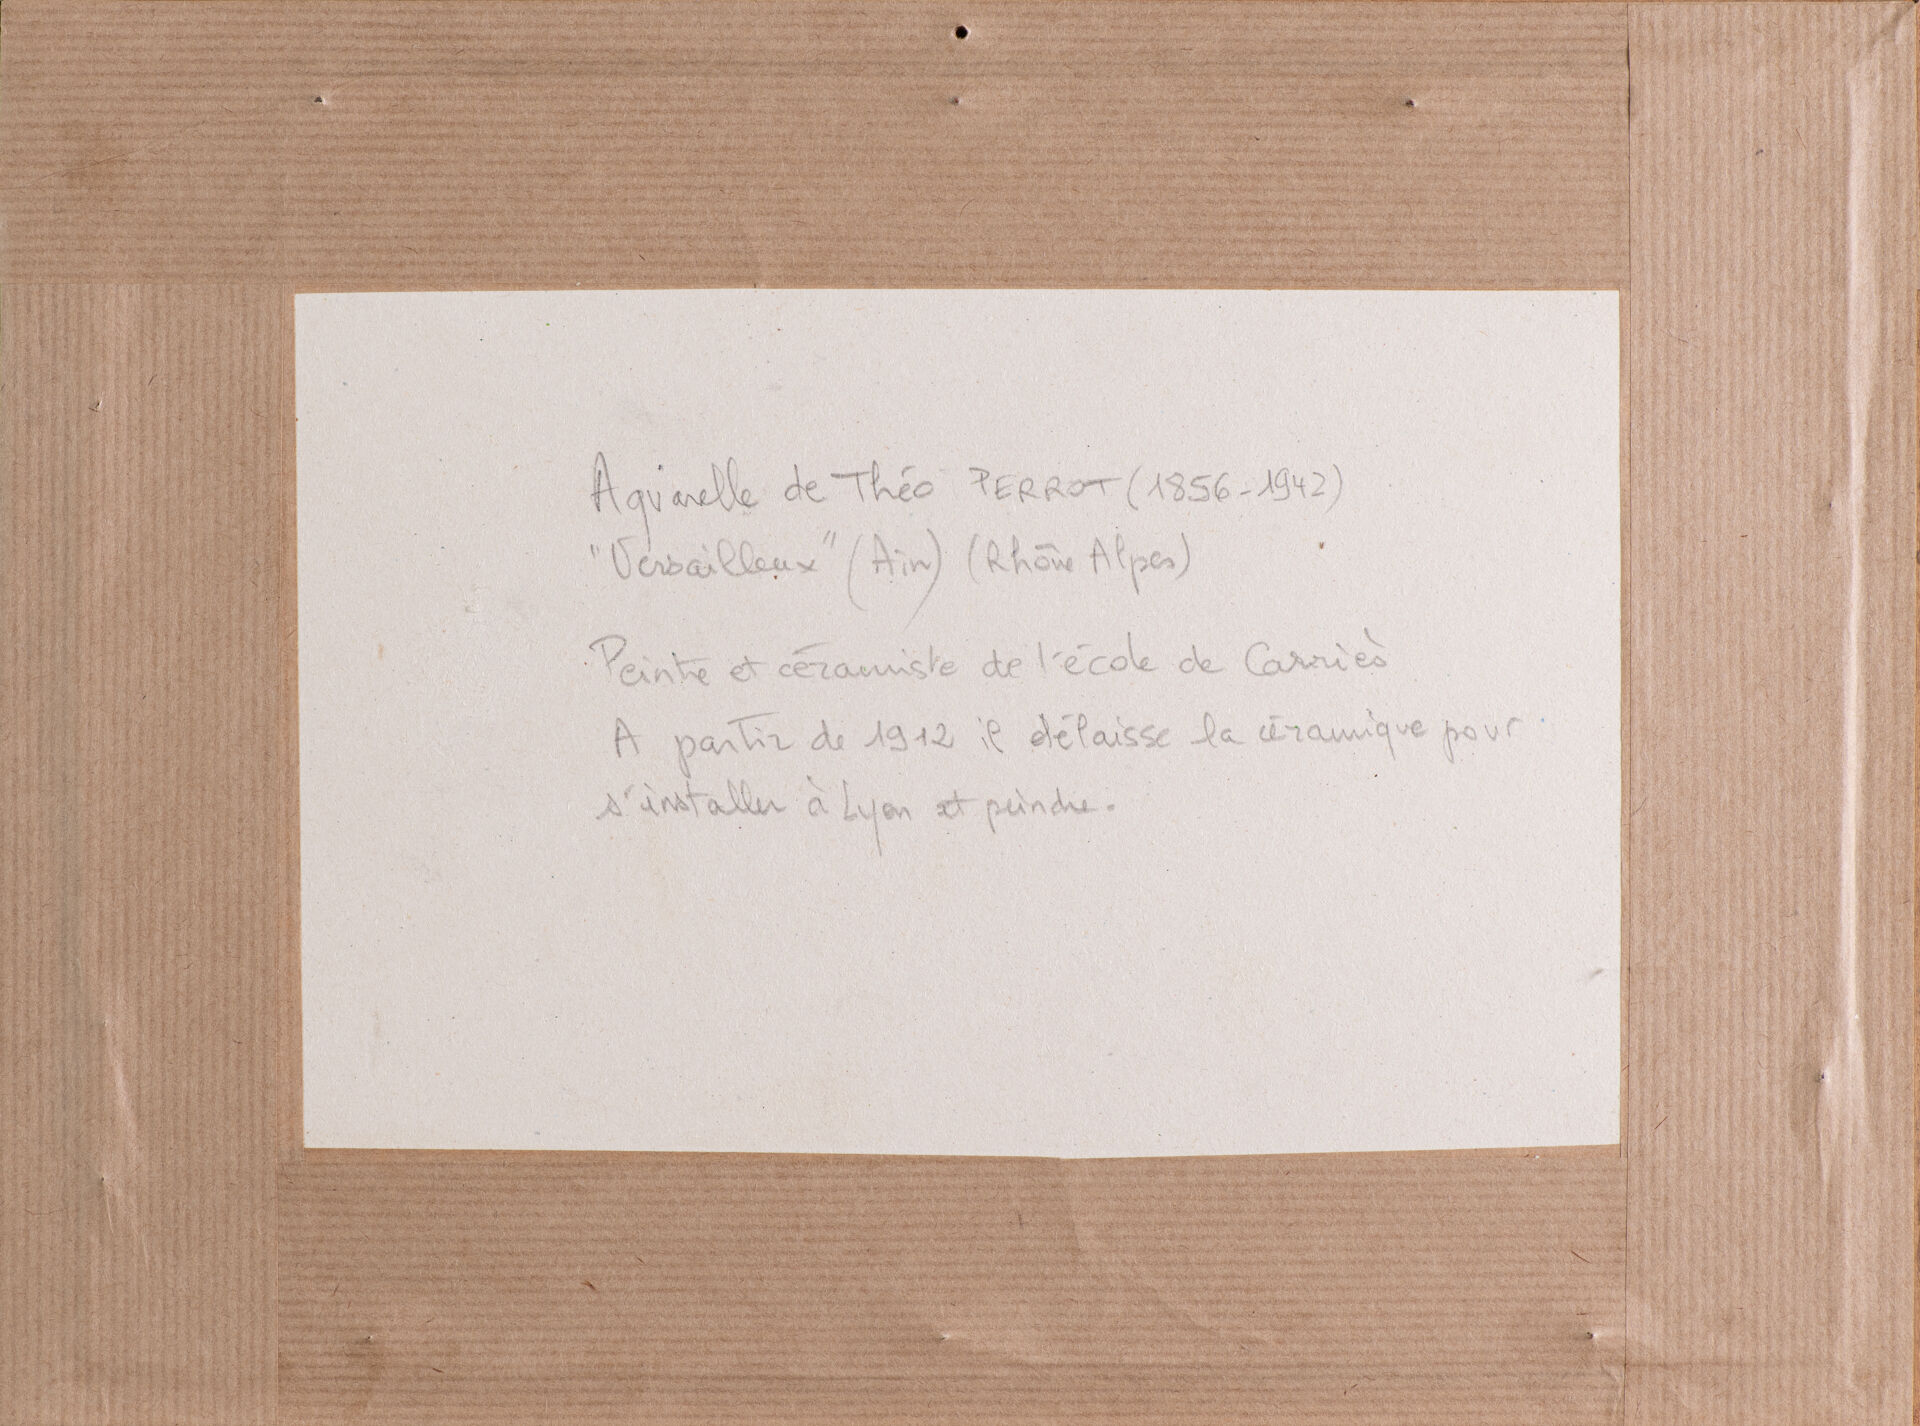 Aquarelle de Théo PERROT (1856-1942)
"Versailleux" (Ain) (Rhône Alpes)
Peintre et céramiste de l'école de Carriès
A partir de 1912 il délaisse la céramique pour
s'installer à Lyon et peindre.